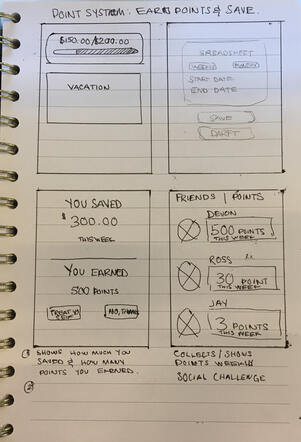 POINT SYSTEM: EARN POINTS & SAVE.
$150.00/$200.00
VACATION
SPREADSHEET
WEEKLY
MONTHLY
START DATE
END DATE
SAVE
DARFT
YOU SAVED
$300.00
THIS WEEK
YOU EARNED
500 POINTS
TREAT YO SELF
NO, THANKS
① SHOWS HOW MUCH YOU
SAVED & HOW MANY
POINTS YOU EARNED.
②
FRIENDS | POINTS
DEVON
500 POINTS
THIS WEEK
ROSS
30 POINT
THIS WEEK
JAY
3 POINTS
THIS WEEK
COLLECTS/SHOWS
POINTS WEEKLY
SOCIAL CHALLENGE